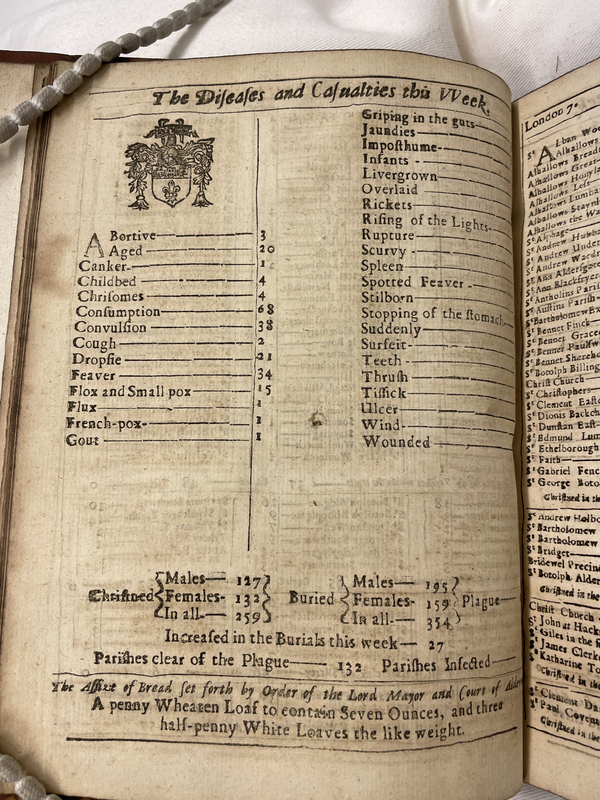 The Diſeaſes and Caſualties this VVeek.
ABortive 3
Aged 20
Canker 1
Childbed 4
Chriſomes 4
Conſumption 68
Convulſion 38
Cough 2
Dropſie 21
Feaver 34
Flox and Small pox 15
Flux 1
French-pox 1
Gout 1
Griping in the guts
Jaundies
Impoſthume
Infants
Livergrown
Overlaid
Rickets
Riſing of the Lights
Rupture
Scurvy
Spleen
Spotted Feaver
Stilborn
Stopping of the ſtomach
Suddenly
Surfeit
Teeth
Thruſh
Tiſſick
Ulcer
Wind
Wounded
Chriſtned Males 127 Females 132 In all 259 Buried Males 195 Females 159 In all 354 Plague
Increaſed in the Burials this week 27
Pariſhes clear of the Plague 132 Pariſhes Infected
The Aſſize of Bread ſet forth by Order of the Lord Mayor and Court of
A penny Wheaten Loaf to contain Seven Ounces, and three
half-penny White Loaves the like weight.
London 7
St ALban
Alhallows
Alhallows
Alhallows
Alhallows
Alhallows
Alhallows
Alhallows the
St Alphage
St Andrew
St Andrew
St Andrew
St Ann
St Ann
St Antholins
St Auſtins Pariſh
St Bartholomew
St Bennet Finck
St Bennet
St Bennet
St Bennet
St Botolph Billing
Chriſt Church
St Chriſtophers
St Clement
St Dionis Backch
St Dunſtan Eaſt
St Edmund Lum
St Ethelborough
St Faith
St Gabriel Fenc
St George Boto
Chriſtned in the
St Andrew Holbo
St Bartholomew
St Bartholomew
St Bridget
Bridewel Precin
St Botolph Alder
Chriſtned in the
Chriſt Church
St John at Hack
St Giles in the
St James Clerk
St Katharine To
Chriſtned in the
St Clement Da
St Paul Covent
Chriſtned in the